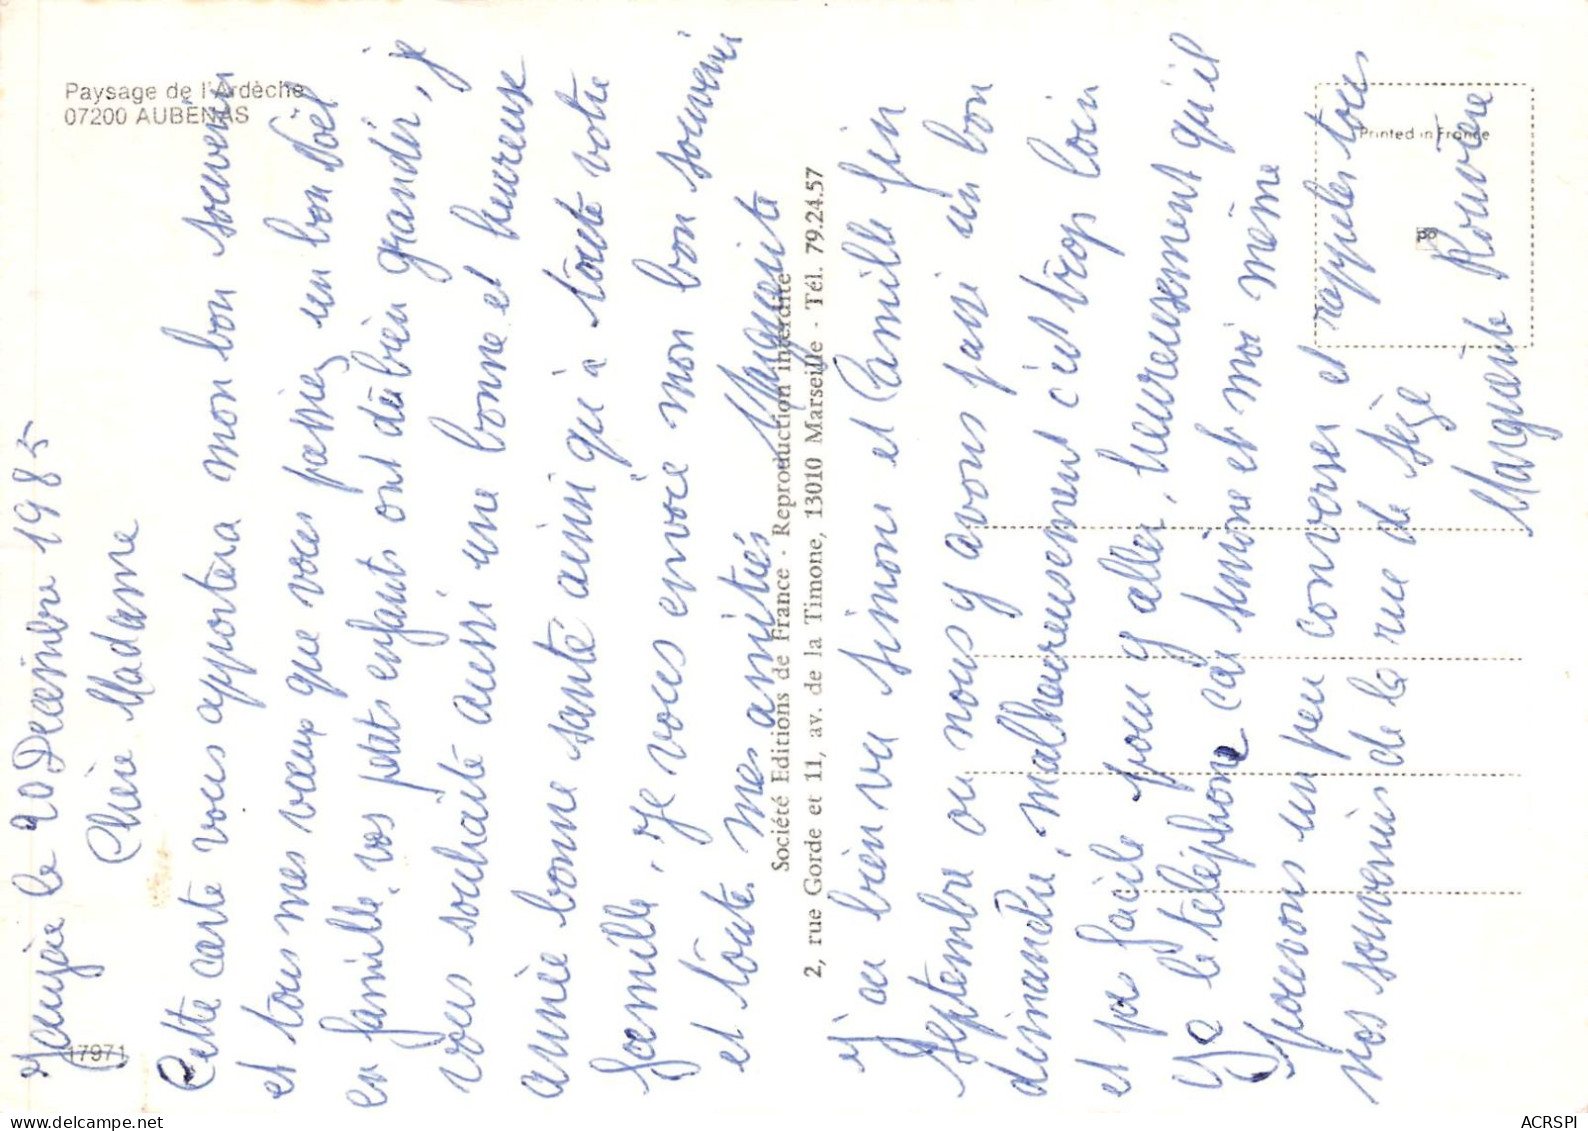 Paysage de l'Ardèche
07200 AUBENAS
17971
le 20 Décembre 1985
Chère Madame
Cette carte vous apportera mon bon souvenir
et tous mes vœux que vous passiez un bon Noël
en famille, vos petits enfants ont dû bien grandir, je
vous souhaite aussi une bonne et heureuse
année bonne santé ainsi qu'à toute votre
famille, je vous envoie mon bon souvenir
et toutes mes amitiés
Marguerite
Société Editions de France - Reproduction interdite
2, rue Gorde et 11, av. de la Timone, 13010 Marseille - Tél. 79.24.57
J'ai bien vu Simone et Camille fin
Septembre ou nous y avons passé un bon
dimanche, malheureusement c'est trop loin
et pas facile pour y aller, heureusement qu'il
y a le téléphone car Simone et moi même
pouvons un peu converser et rappeler tous
nos souvenirs de la rue de Sèze
Marguerite Rouvière
Printed in France
ACRSPI